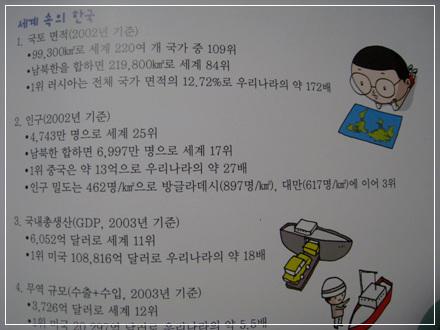 세계 속의 한국
1. 국토 면적(2002년 기준)
•99,300㎢로 세계 220여 개 국가 중 109위
•남북한을 합하면 219,800㎢로 세계 84위
•1위 러시아는 전체 국가 면적의 12.72%로 우리나라의 약 172배
2. 인구(2002년 기준)
•4,743만 명으로 세계 25위
•남북한 합하면 6,997만 명으로 세계 17위
•1위 중국은 약 13억으로 우리나라의 약 27배
•인구 밀도는 462명/㎢으로 방글라데시(897명/㎢), 대만(617명/㎢)에 이어 3위
3. 국내총생산(GDP, 2003년 기준)
•6,052억 달러로 세계 11위
•1위 미국 108,816억 달러로 우리나라의 약 18배
4. 무역 규모(수출+수입, 2003년 기준)
•3,726억 달러로 세계 12위
•1위 미국 20,297억 달러로 우리나라의 약 5.5배